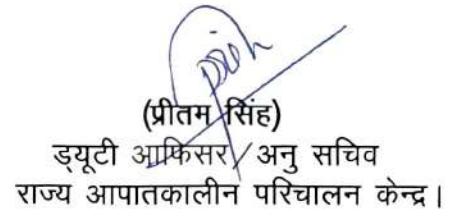 (प्रीतम सिंह)
ड्यूटी आफिसर/ अनु सचिव
राज्य आपातकालीन परिचालन केन्द्र।